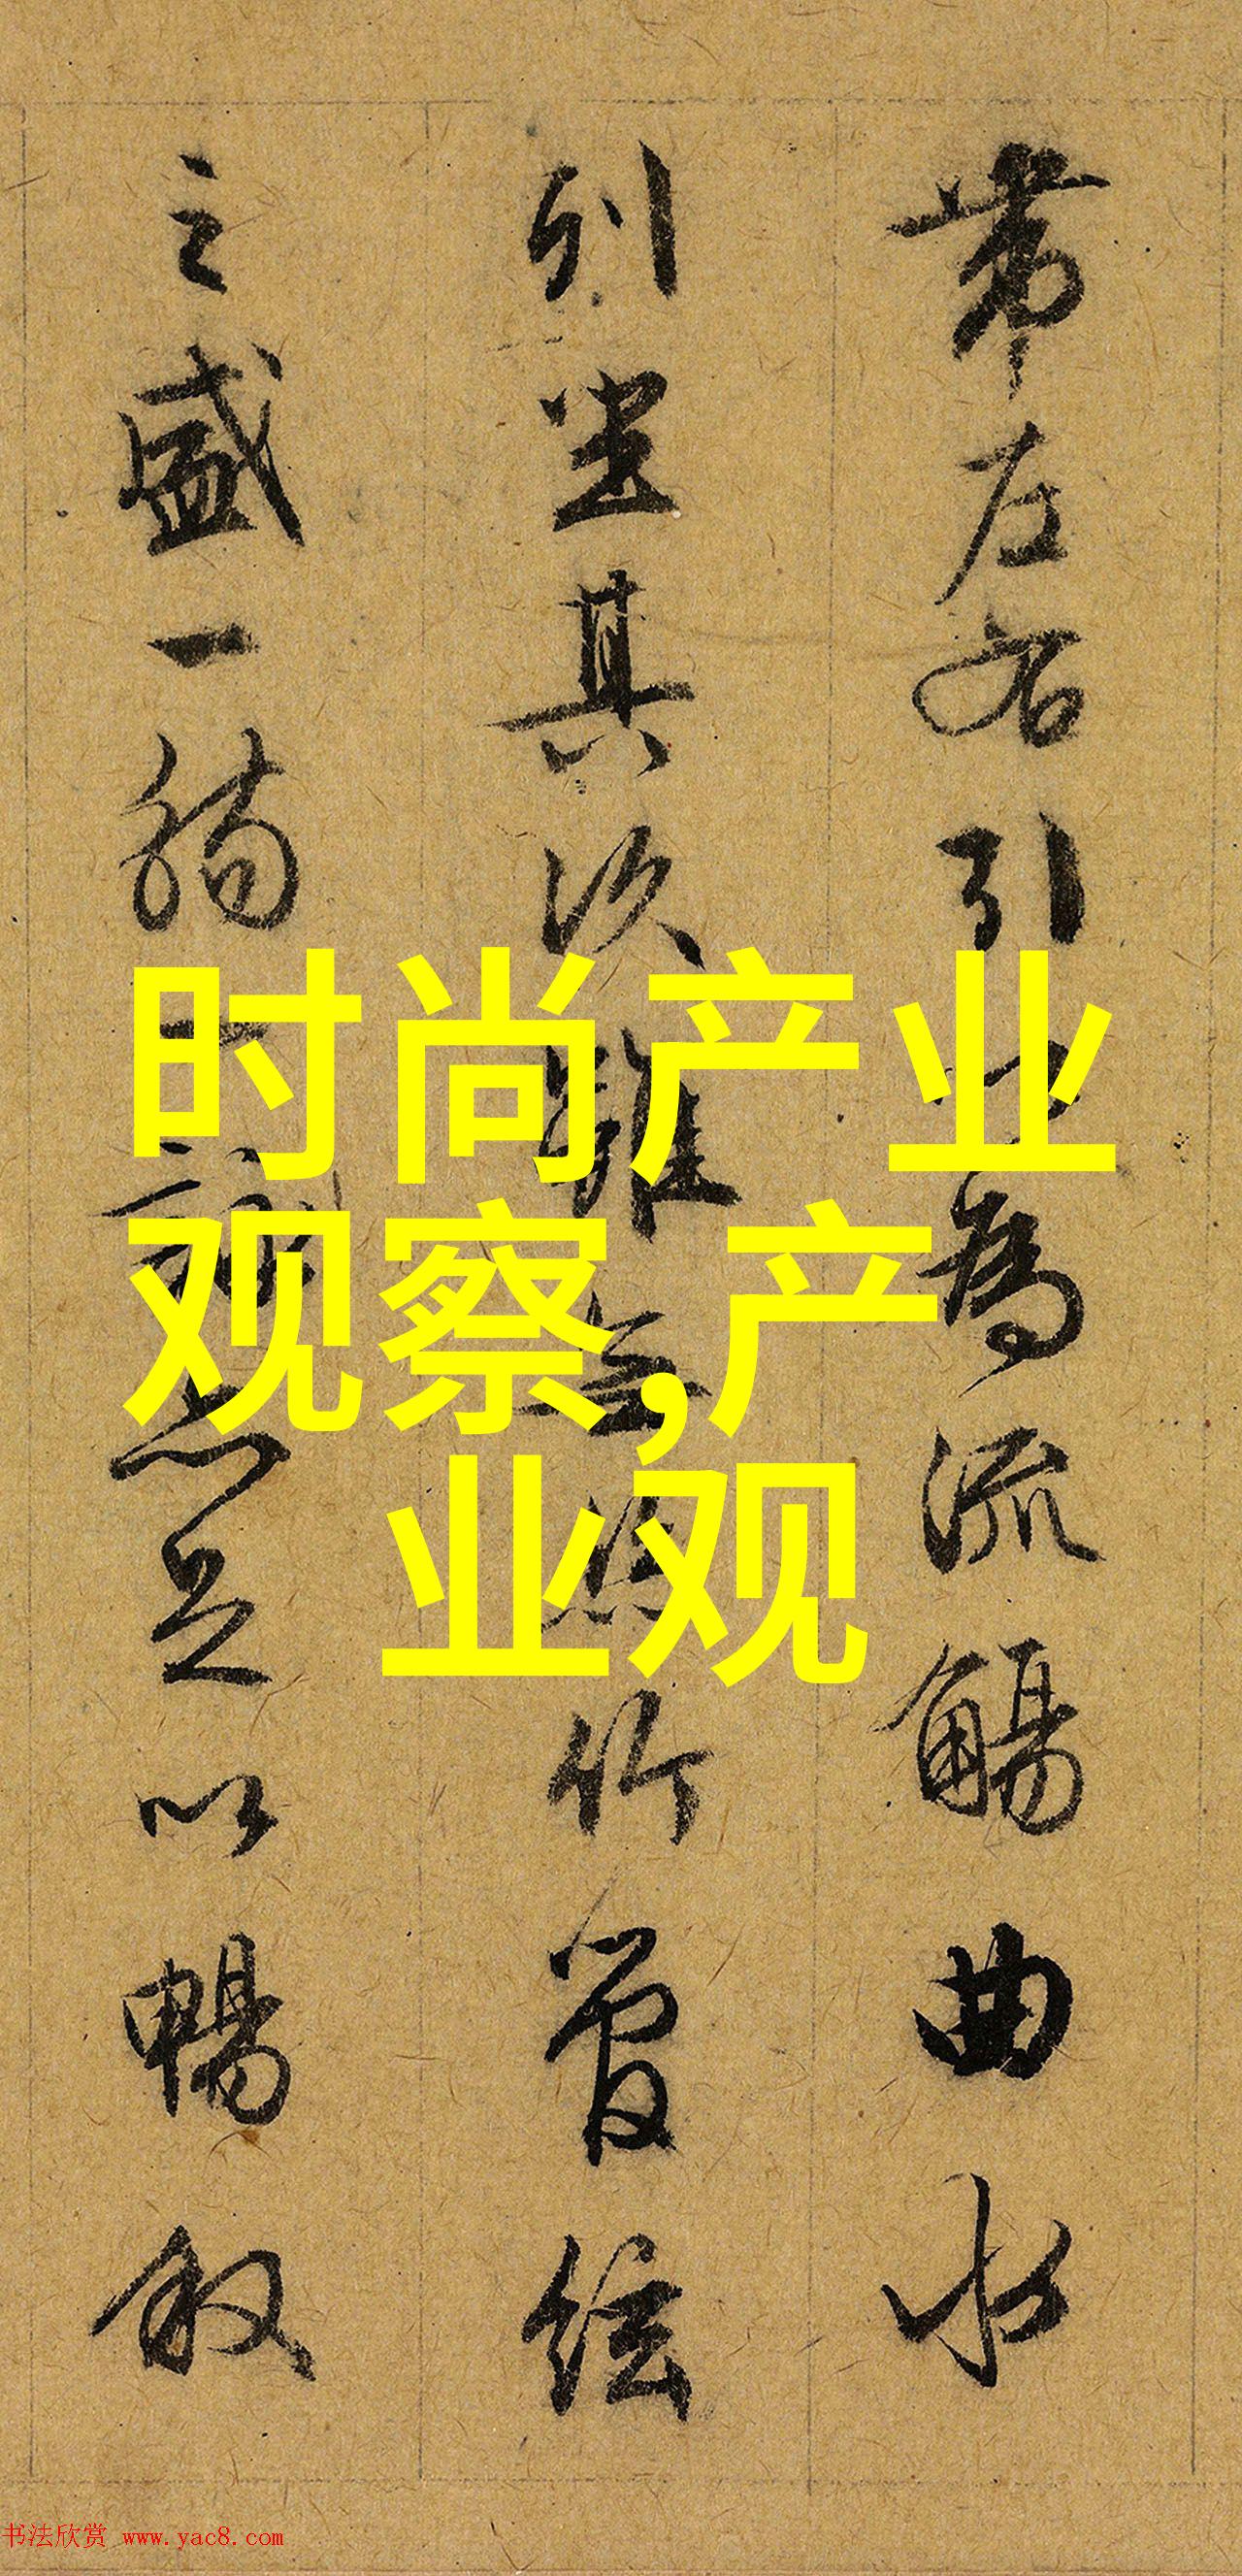 帶左右引以為流觴曲水
列坐其次雖無絲竹管絃
之盛一觴一詠亦足以暢叙
时尚产业
观察,产
业观
书法欣赏 www.yac8.com